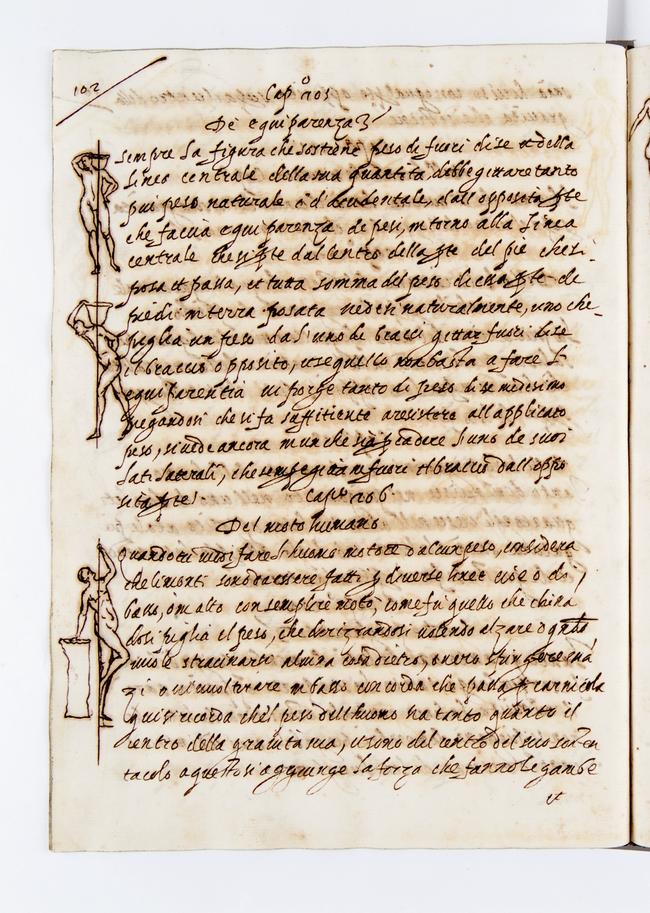 102
Cap.o 205
De equiparenza
Sempre la figura che sostiene peso di fuori di se et della
linea centrale della sua quantità, debbe gittare tanto
piu peso naturale o d'accidentale, dall opposita pte
che faccia equiparenza de pesi, intorno alla linea
centrale che si pte dal centro della pte del pie che si
posa et passa, et tutta somma del peso di essa pte de
piedi in terra posata vedesi naturalmente, uno che
piglia un peso da l'uno de bracci gittar fuori di se
il braccio opposito, et se quello non basta a fare l
equiparentia vi porge tanto di peso di se medesimo
piegandosi che si fa suffitiente a resistere all applicato
peso, si vede ancora in un che sia p cadere l uno de suoi
lati laterali, che semp gitta in fuori il braccio dall oppo
sita pte.
Cap.o 206.
Del moto humano
Quando tu vuoi fare l huomo motore d alcun peso, considera
che li moti sono da essere fatti p diverse linee cioe o di
basso, in alto con semplice moto, come fa quello che china
dosi piglia il peso, che dirizzandosi volendo alzare o qndo
vuole strascinarsi alcuna cosa dietro, overo spingere ina
zi o vuol tirare in basso con corda che passa p carrucola
qui si ricorda che l peso dell huomo ha tanto quanto il
centro della gravita sua, è lono del centro del suo sosten
tacolo a questo si aggiunge la forza che fanno le gambe
et